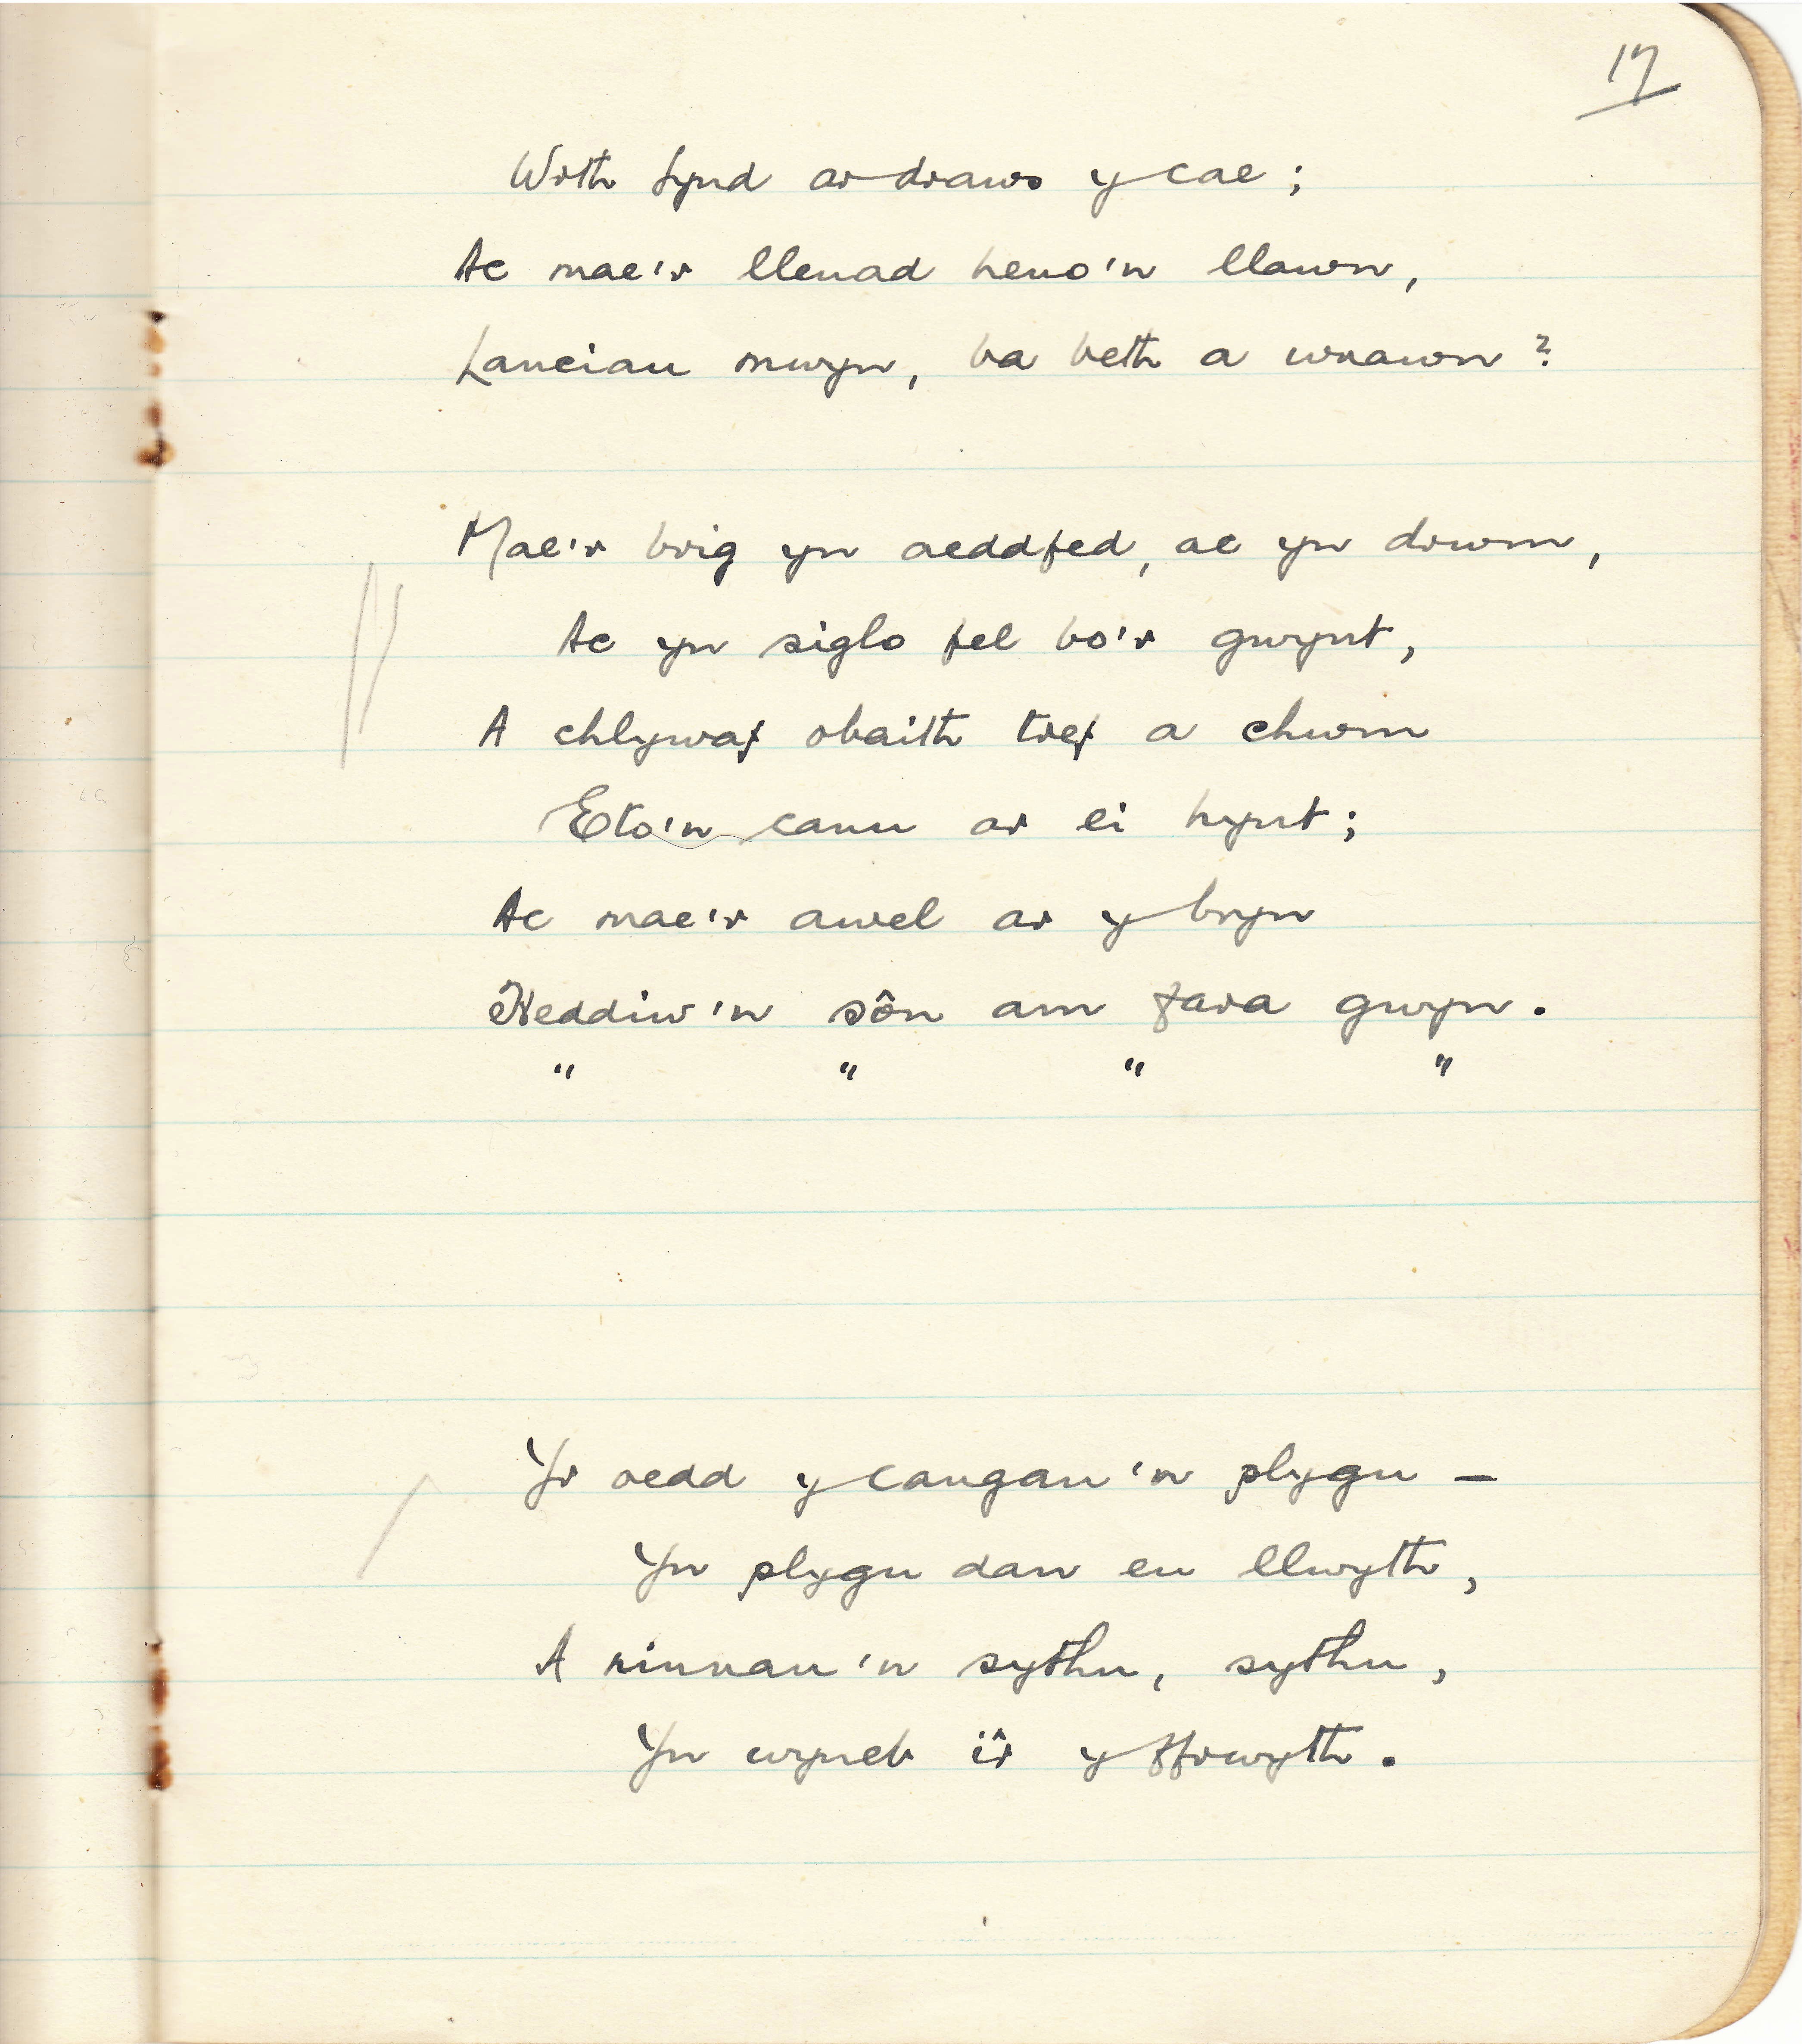 17
Wrth fynd ar draws y cae;
Ac mae'r lleuad heno'n llawn,
Lanciau mwyn, ba beth a wnawn?
Mae'r brig yn aeddfed, ac yn drwm,
Ac yn siglo fel bo'r gwynt,
A chlywaf obaith tref a chwm
Eto'n canu ar ei hynt;
Ac mae'r awel ar y bryn
Heddiw'n sôn am fara gwyn.
" " " "
Yr oedd y cangau'n plygu —
Yn plygu dan eu llwyth,
A ninnau'n sythu, sythu,
Yn wyneb îr y ffrwyth.